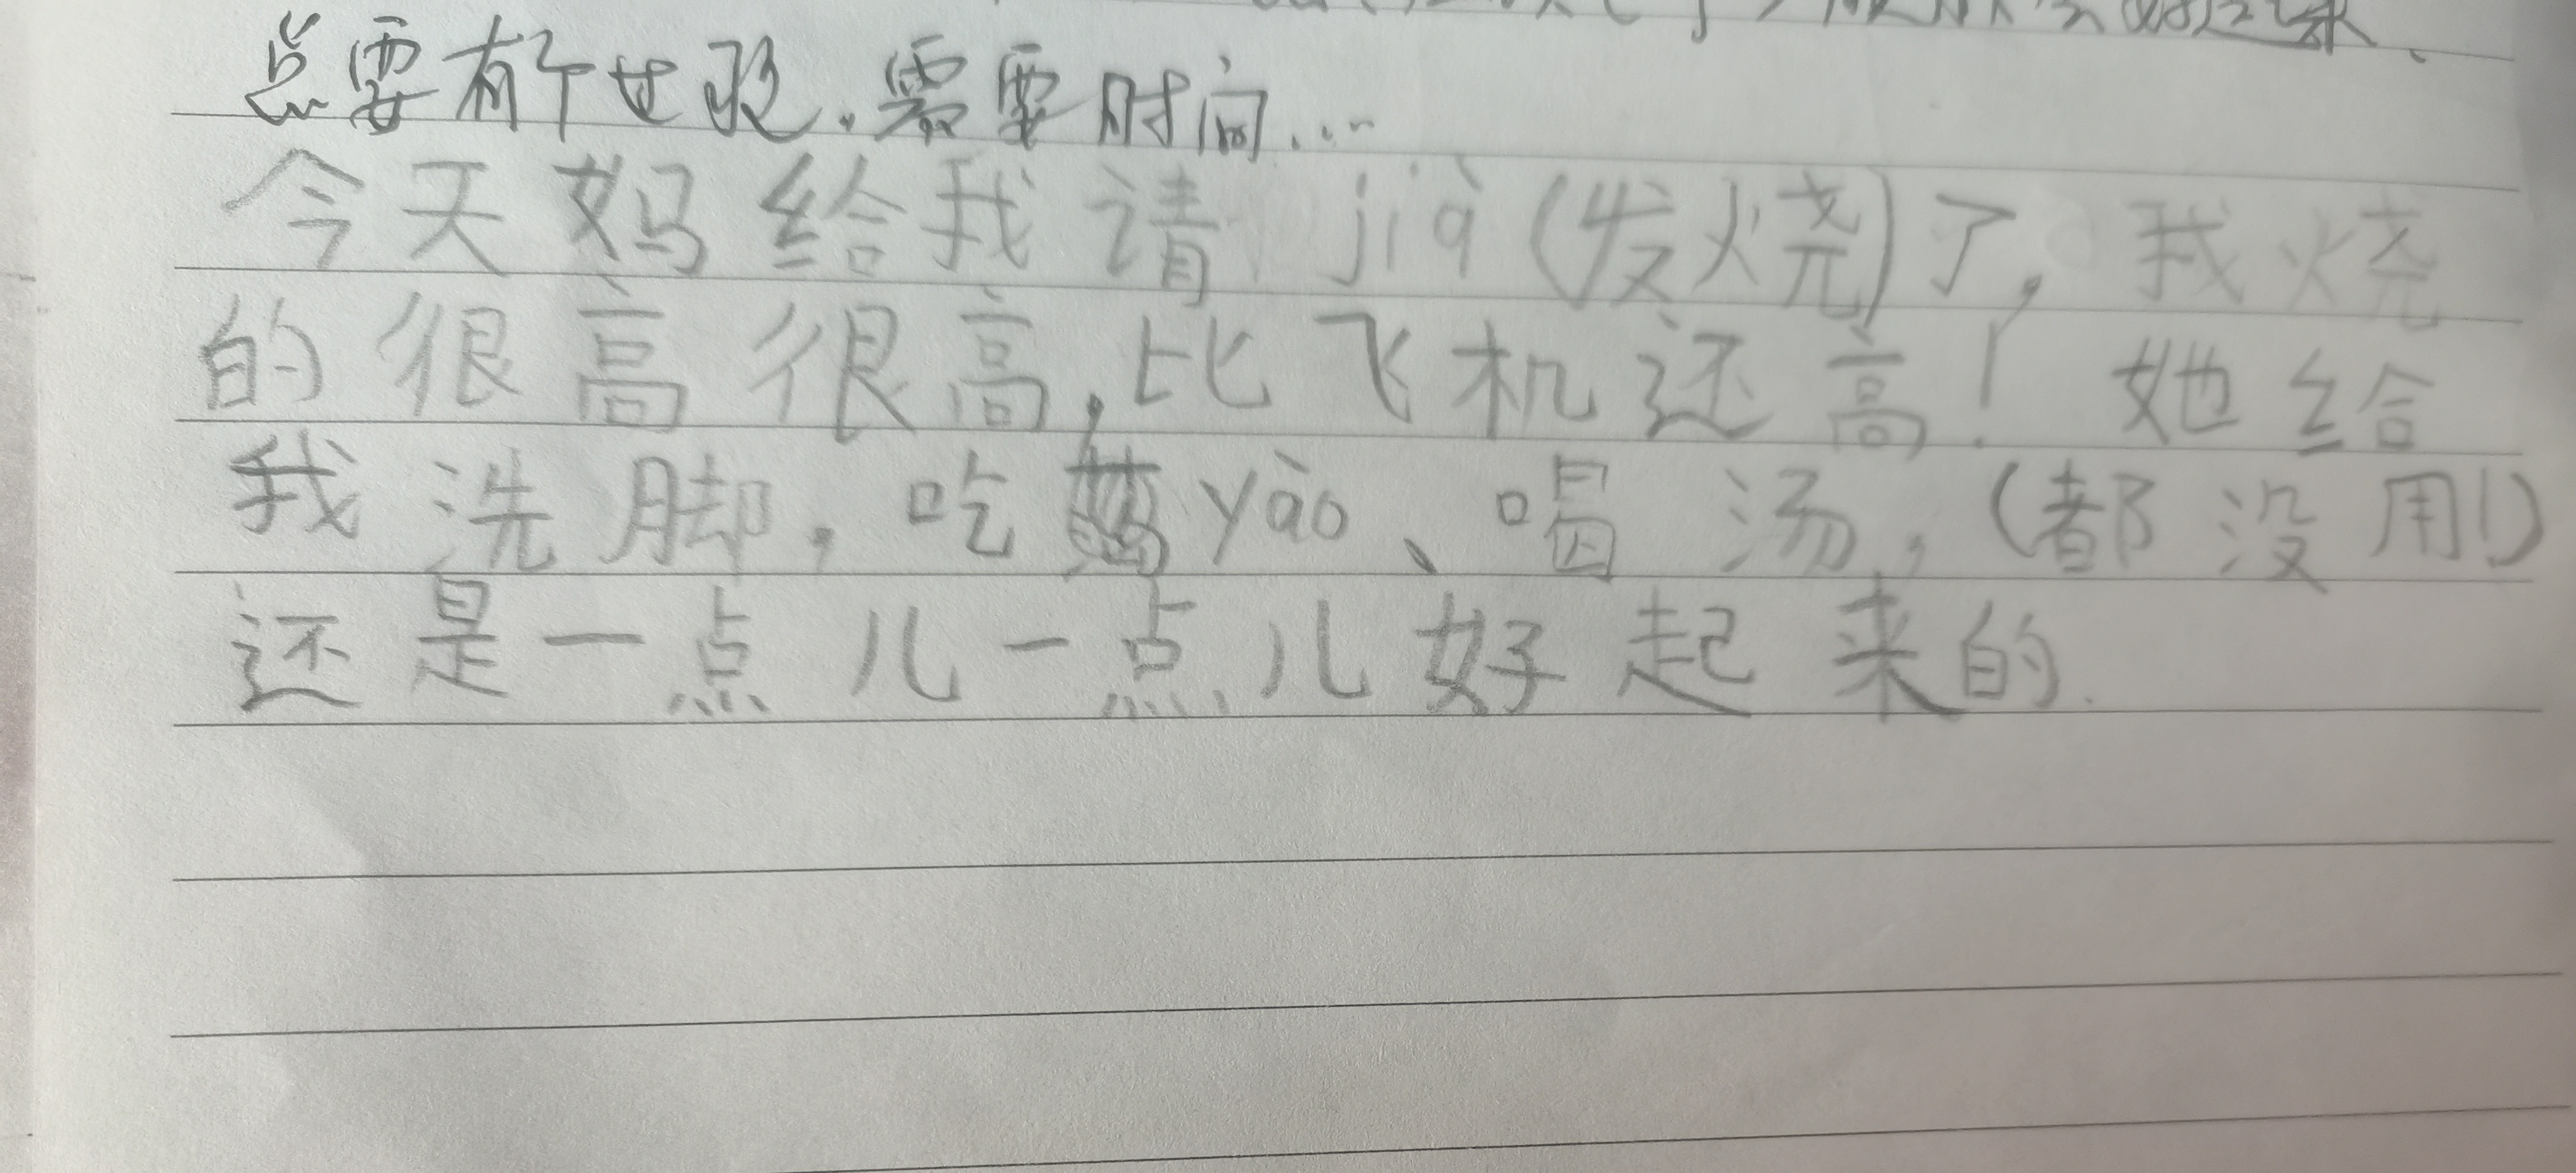 总要有个过程，需要时间...
今天妈给我请 jià (发烧)了，我烧
的很高很高，比飞机还高！她给
我洗脚，吃yào、喝汤，(都没用!)
还是一点儿一点儿好起来的.